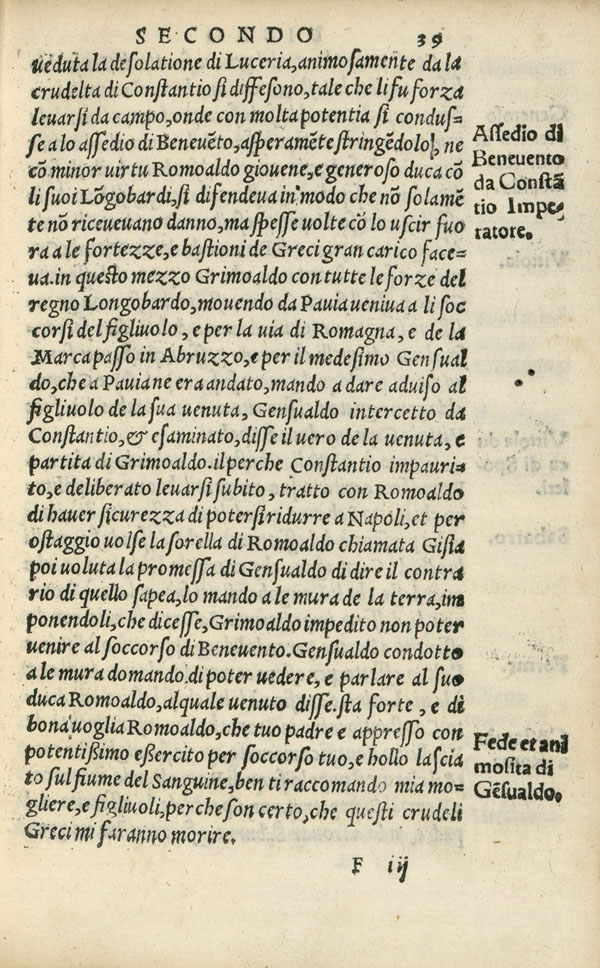 SECONDO 39
ueduta la desolatione di Luceria, animosamente da la
crudelta di Constantio si diffesono, tale che li fu forza
leuarsi da campo, onde con molta potentia si condus-
se a lo assedio di Beneuẽto, asperamẽte stringẽdolo, ne
cõ minor uirtu Romoaldo giouene, e generoso duca cõ
li suoi Lõgobardi, si difendeua in modo che nõ solamẽ
te nõ riceueuano danno, ma spesse uolte cõ lo uscir fuo
ra a le fortezze, e bastioni de Greci gran carico face-
ua. in questo mezzo Grimoaldo con tutte le forze del
regno Longobardo, mouendo da Pauia ueniua a li soc
corsi del figliuolo, e per la uia di Romagna, e de la
Marca passo in Abruzzo, e per il medesimo Gensual
do, che a Pauia ne era andato, mando a dare aduiso al
figliuolo de la sua uenuta, Gensualdo intercetto da
Constantio, & esaminato, disse il uero de la uenuta, e
partita di Grimoaldo. il perche Constantio impauri-
to, e deliberato leuarsi subito, tratto con Romoaldo
di hauer sicurezza di potersi ridurre a Napoli, et per
ostaggio uolse la sorella di Romoaldo chiamata Gisia
poi uoluta la promessa di Gensualdo di dire il contra
rio di quello sapea, lo mando a le mura de la terra, im
ponendoli, che dicesse, Grimoaldo impedito non poter
uenire al soccorso di Beneuento. Gensualdo condotto
a le mura domando di poter uedere, e parlare al suo
duca Romoaldo, al quale uenuto disse. sta forte, e di
bona uoglia Romoaldo, che tuo padre e appresso con
potentißimo eßercito per soccorso tuo, e hollo lascia
to sul fiume del Sanguine, ben ti raccomando mia mo-
gliere, e figliuoli, perche son certo, che questi crudeli
Greci mi faranno morire.
F iij
Assedio di
Beneuento
da Constã
tio Impe-
ratore.
Fede et ani
mosita di
Gẽsualdo.